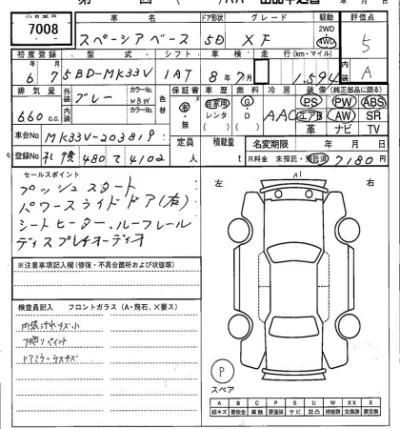 出品番号
7008
車名
スペーシアベース
ドア形状
5D
グレード
XF
駆動
2WD
4WD
評価点
5
初度登録
6 7
型式
5BD-MK33V
シフト
1AT
車検
8年7月
走行(km・マイル)
1,594
内装
A
排気量
660 c.c.
外装色
グレー
カラーNo.
WBW
カラーNo.
色替
保証書
有・無
車歴
自家用
レンタ
燃料
G
D
冷房
AAC
装備(純正部品に限る)
PS PW ABS
エアB AW SR
革 ナビ TV
車台No
MK33V-203819
登録No
札幌 480 て 4102
定員
人
積載量
t
名変期限
年 月 日
R料金 未預託・預託済
7180 円
セールスポイント
プッシュスタート
パワースライドドア(右)
シートヒーター、ルーフレール
ディスプレイオーディオ
左
右
A1
※注意事項記入欄(修復・不具合箇所および状態等)
検査員記入 フロントガラス(A・飛石、×要ス)
内張汚れキズ小
下廻りペイント
ドアミラーキズ
P
スペア
A B C P S U W X XX